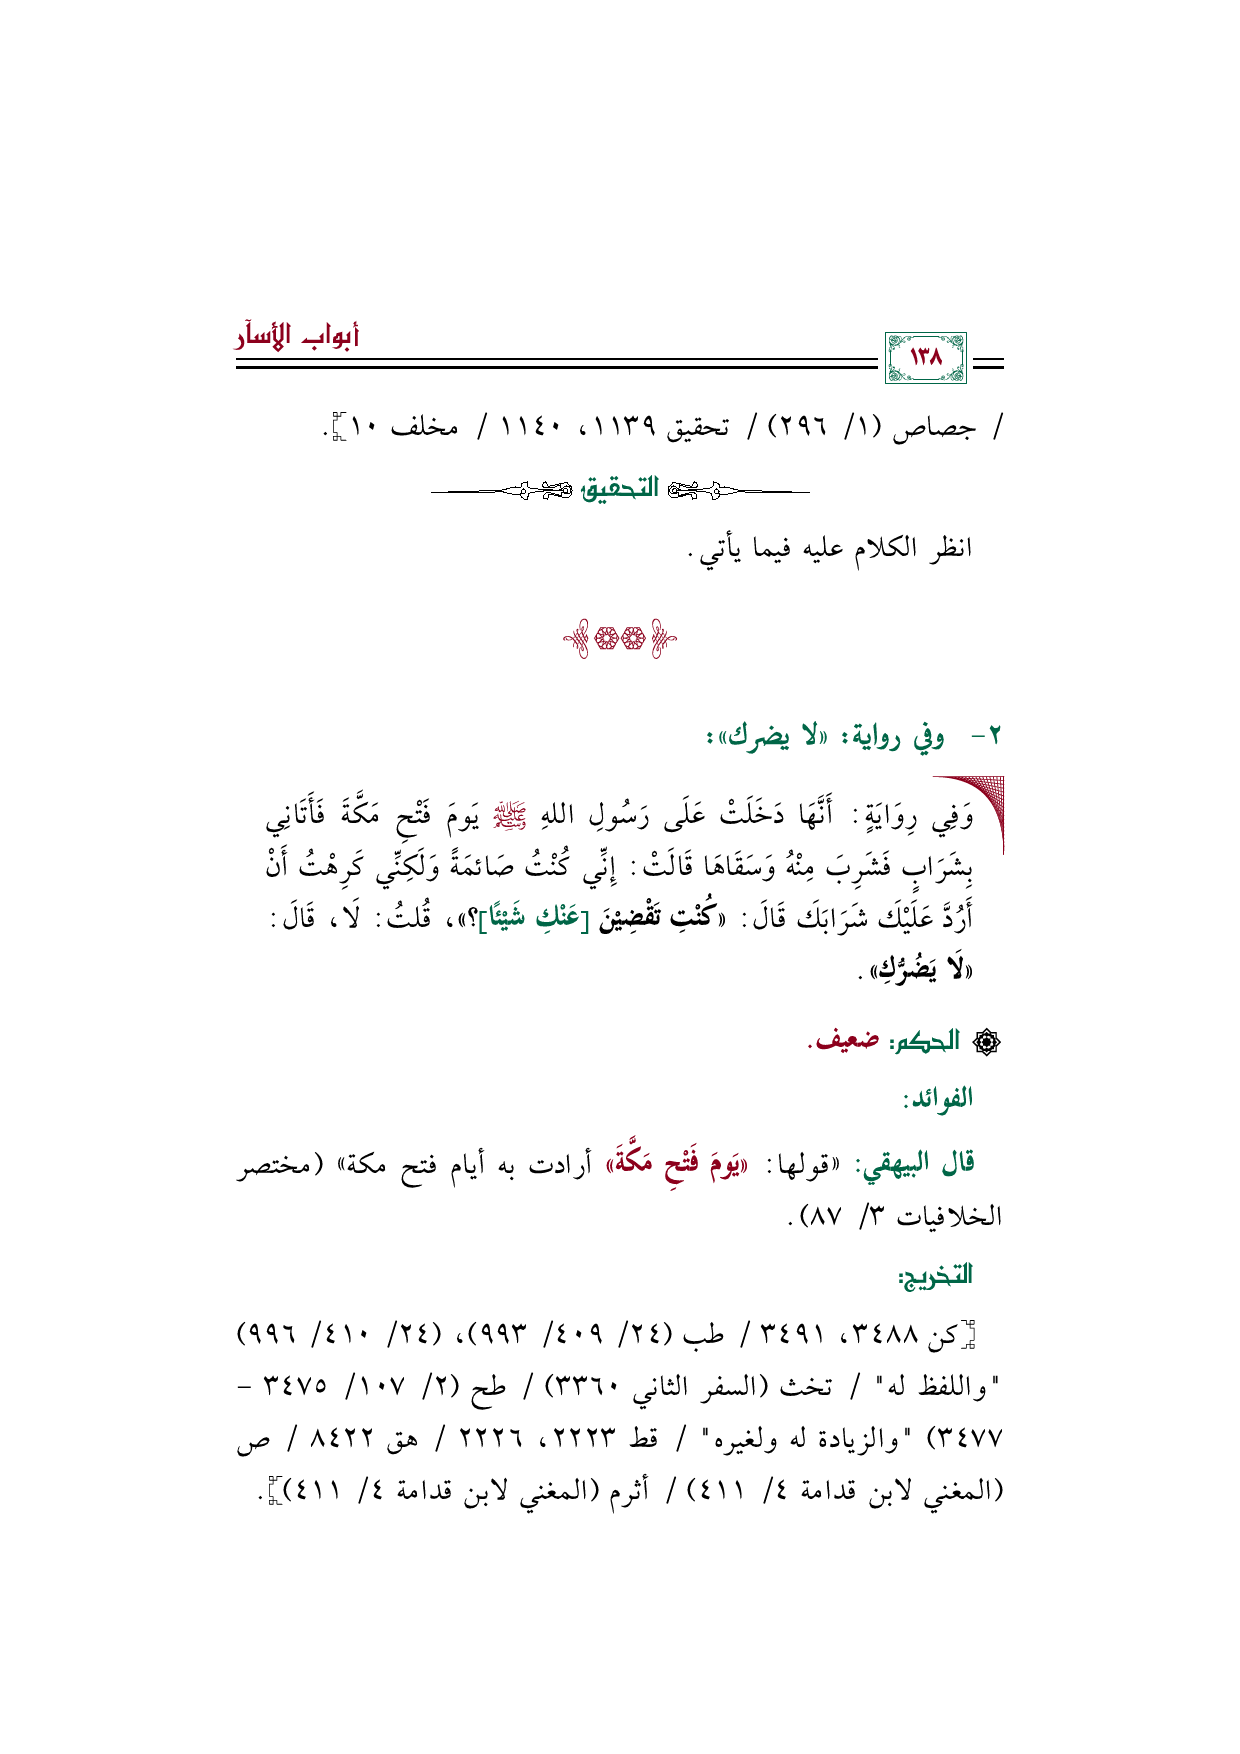 أبواب الأسآر
١٣٨
/ جصاص (١/ ٢٩٦) / تحقيق ١١٣٩، ١١٤٠ / مخلف ١٠].
التحقيق
انظر الكلام عليه فيما يأتي.
٢- وفي رواية: «لا يضرك»:
وَفِي رِوَايَةٍ: أَنَّهَا دَخَلَتْ عَلَى رَسُولِ اللهِ ﷺ يَومَ فَتْحِ مَكَّةَ فَأَتَانِي
بِشَرَابٍ فَشَرِبَ مِنْهُ وَسَقَاهَا قَالَتْ: إِنِّي كُنْتُ صَائمَةً وَلَكِنِّي كَرِهْتُ أَنْ
أَرُدَّ عَلَيْكَ شَرَابَكَ قَالَ: «كُنْتِ تَقْضِيْنَ [عَنْكِ شَيْئًا]؟»، قُلتُ: لَا، قَالَ:
«لَا يَضُرُّكِ».
الحكم: ضعيف.
الفوائد:
قال البيهقي: «قولها: «يَومَ فَتْحِ مَكَّةَ» أرادت به أيام فتح مكة» (مختصر
الخلافيات ٣/ ٨٧).
التخريج:
[كن ٣٤٨٨، ٣٤٩١ / طب (٢٤/ ٤٠٩/ ٩٩٣)، (٢٤/ ٤١٠/ ٩٩٦)
"واللفظ له" / تخث (السفر الثاني ٣٣٦٠) / طح (٢/ ١٠٧/ ٣٤٧٥ -
٣٤٧٧) "والزيادة له ولغيره" / قط ٢٢٢٣، ٢٢٢٦ / هق ٨٤٢٢ / ص
(المغني لابن قدامة ٤/ ٤١١) / أثرم (المغني لابن قدامة ٤/ ٤١١)].